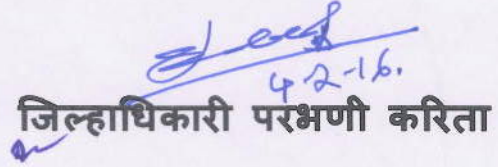 4-2-16.
जिल्हाधिकारी परभणी करिता